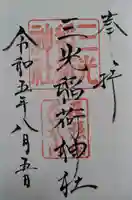 奉拝
三光稲荷神社
三光
神社
令和五年八月五日